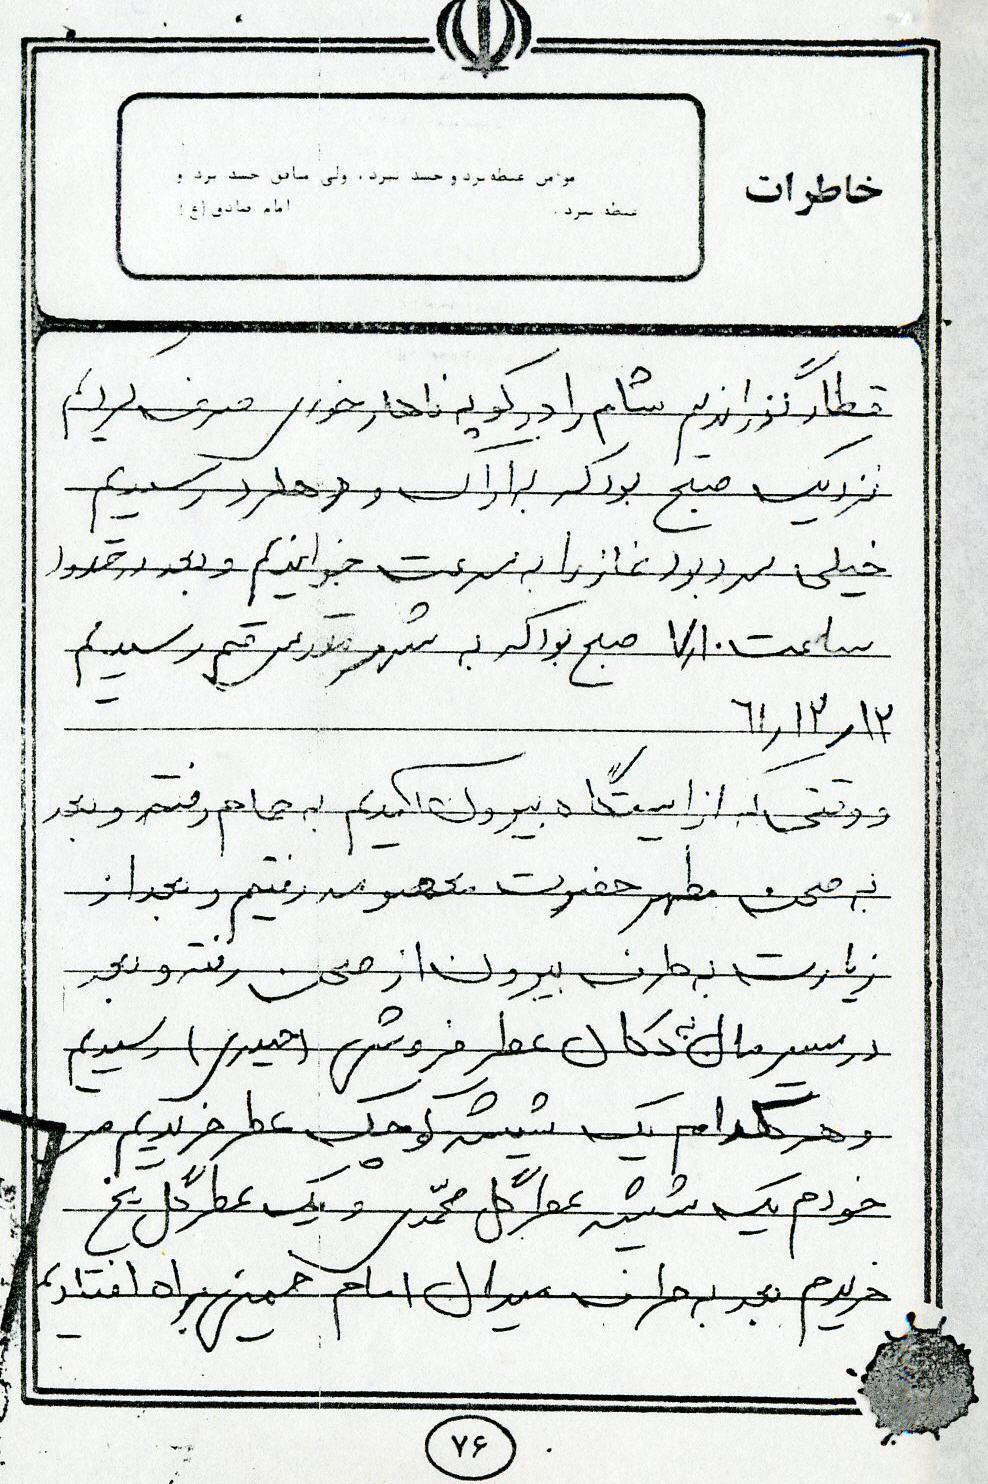 خاطرات
مؤمن غبطه برد و حسد نبرد، ولی منافق حسد برد و
غبطه نبرد. امام صادق (ع)
قطار گذراندیم شام را در کوپه ناهارخوری صرف کردیم
نزدیک صبح بود که به اراک و رسیدیم
خیلی سرد بود نماز را به سرعت خواندیم و بعد در حدود
ساعت ۷٫۱۰ صبح بود که به شهر مقدس قم رسیدیم
۱۲ر۱۲ر۶۱
و وقتی که از ایستگاه بیرون آمدیم به حمام رفته و بعد
به صحن مطهر حضرت معصومه رفتیم و بعد از
زیارت به طرف بیرون از صحن رفته و بعد
در مسیرمان به دکان عطر فروشی (حیدری) رسیدیم
و هر کدام یک شیشه کوچک عطر خریدیم من
خودم یک شیشه عطر گل محمّدی و یک عطر گل یخ
خریدم بعد به طرف میدان امام خمینی براه افتادیم
۷۶